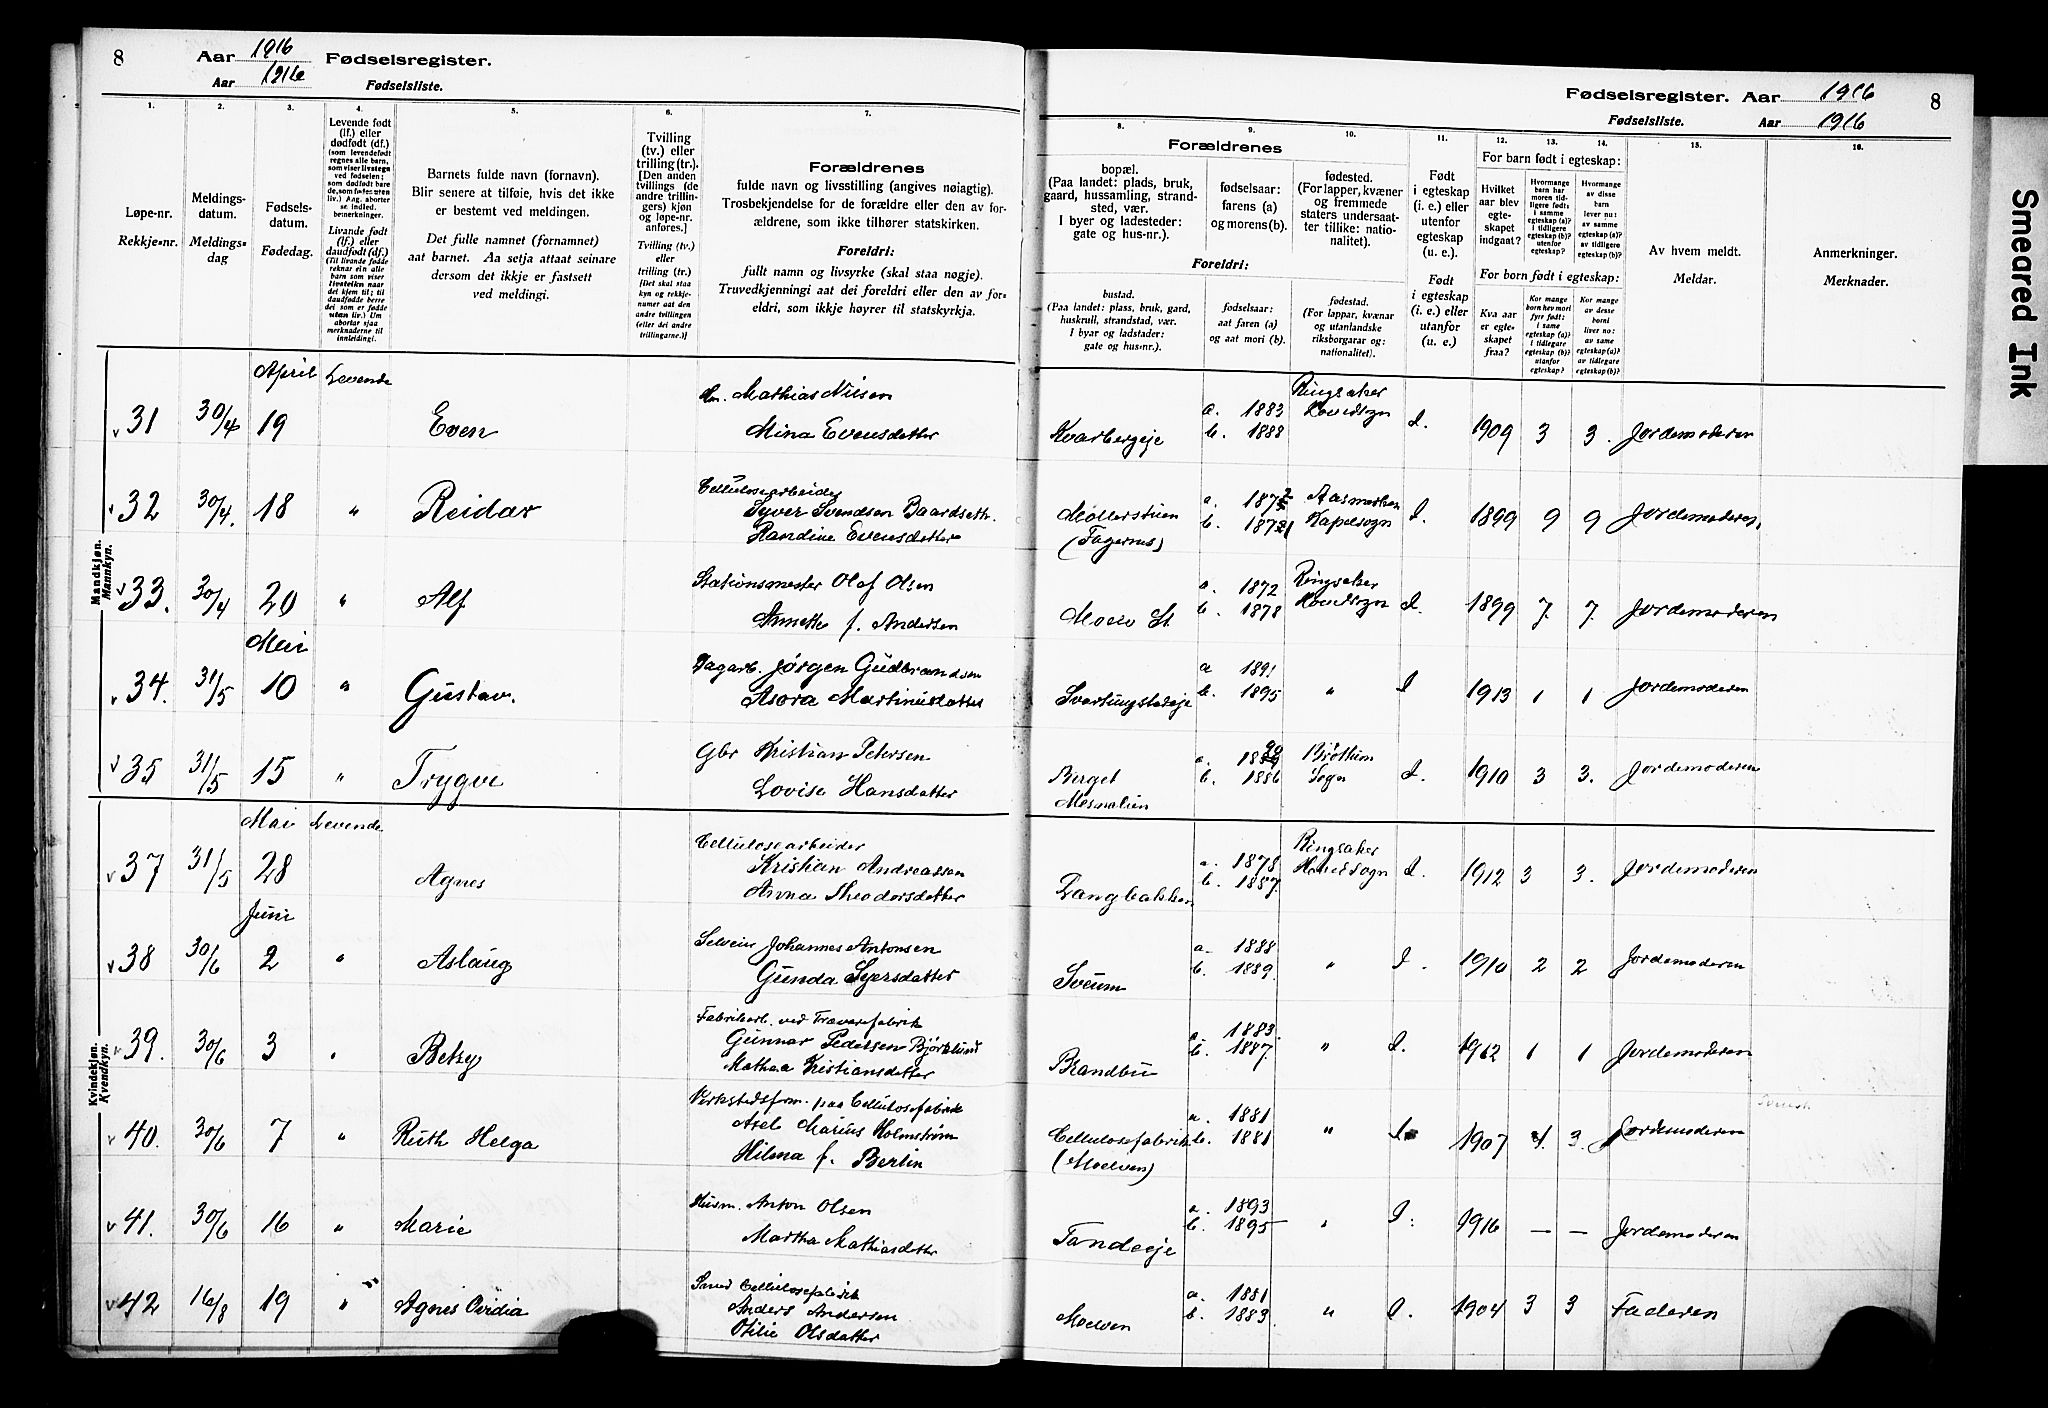 8 Aar 1916 Fødselsregister.
Aar 1916 Fødselsliste.
Fødselsregister. Aar 1916 8
Fødselsliste. Aar 1916
Smeared Ink
1. 2. 3. 4. 5. 6. 7.
Løpe-nr.
Rekkje-nr.
Meldings-
datum.
Meldings-
dag
Fødsels-
datum.
Fødedag.
Levende født
(lf.) eller
dødfødt (df.)
(som levendefødt
regnes alle barn,
som viser livstegn
ved fødselen;
som dødfødt bare
de, som fødes uten
liv.) Ang. aborter
se indled.
bemerkninger.
Livande født
(lf.) eller
daudfødt (df.)
(Til livande fødde
reknar ein alle
barn som viser
livsteikn naar
dei kjem til; til
daudfødde berre
dei som er fødde
utan liv.) Um
abortar sjaa
merknaderne til
innleiding).
Barnets fulde navn (fornavn).
Blir senere at tilføie, hvis det ikke
er bestemt ved meldingen.
Det fulle namnet (fornamnet)
aat barnet. Aa setja attaat seinare
dersom det ikkje er fastsett
ved meldingi.
Tvilling
(tv.) eller
trilling (tr.).
[Den anden
tvillings (de
andre trillin-
gers) kjøn
og løpe-nr.
anføres.]
Tvilling (tv.)
eller
trilling (tr.)
[Det skal staa
kyn og rekkje-
numer aat den
andre tvillingen
(eller dei andre
trillingarne.)]
Forældrenes
fulde navn og livsstilling (angives nøiagtig).
Trosbekjendelse for de forældre eller den av for-
ældrene, som ikke tilhører statskirken.
Foreldri:
fullt namn og livsyrke (skal staa nøgje).
Truvedkjenningi aat dei foreldri eller den av for-
eldri, som ikkje høyrer til statskyrkja.
8. 9. 10. 11. 12. 13. 14. 15. 16.
Forældrenes
bopæl.
(Paa landet: plads, bruk,
gaard, hussamling, strand-
sted, vær.
I byer og ladesteder:
gate og hus-nr.).
fødselsaar:
farens (a)
og morens (b).
fødested.
(For lapper, kvæner
og fremmede
staters undersaat-
ter tillike: natio-
nalitet).
Foreldri:
bustad.
(Paa landet: plass, bruk, gard,
huskrull, strandstad, vær.
I byar og ladstader:
gate og hus-nr.).
fødselsaar:
aat faren (a)
og aat mori (b).
fødestad.
(For lappar, kvænar
og utanlandske
riksborgarar og:
nationalitet).
Født
i egteskap
(i. e.) eller
utenfor
egteskap
(u. e.).
Født
i egteskap
(i. e.) eller
utanfor
(u. e.).
For barn født i egteskap:
Hvilket
aar blev
egte-
skapet
indgaat?
Hvormange
barn har
moren tid-
ligere født:
i samme
egteskap (a)?
i tidligere
egteskap (b)?
utenfor
egteskap?
Hvormange
av disse
barn
lever nu:
av samme
egteskap (a)?
av tidligere
egteskap (b)?
For born født i egteskap:
Kva aar
er egte-
skapet
fraa?
Kor mange
born hev mori
fyrr født:
i same
egteskap (a)?
i tidlegare
egteskap (b)?
utanfor
egteskap?
Kor mange
av desse
borni
liver no:
av same
egteskap (a)?
av tidlegare
egteskap (b)?
Av hvem meldt.
Meldar.
Anmerkninger.
Merknader.
Mandkjøn.
Mannkyn.
April Levende
v 31 30/4 19 Even Mathias Nilsen
Mina Evensdatter Kvarbergeje a. 1883 b. 1888 Ringsaker Hovedsogn I. 1909 3 3. Jordemoderen
v 32 30/4. 18 " Reidar Cellulosearbeider
Syver Svendsen Baardseth.
Randine Evensdatter Møllerstuen
(Fagernes) a. b. Aasmarken Kapelsogn I. 1899 9 9 Jordemoderen
v 33. 30/4 20 " Alf Stationsmester Olof Olsen
Annette f. Andersen Moelv St. a. 1872 b. 1878 Ringsaker Hovedsogn I. 1899 7. 7. Jordemoderen
Mai
v 34. 31/5 10 " Gustav. Dagarb. Jørgen Gudbrandsen
Asora Martinusdatter a 1891 b. 1895 " I 1913 1 1 Jordemoderen
v 35 31/5 15 " Trygve Gbr Kristian Petersen
Lovise Hansdatter Berget
Mesnalien a. b. 1886 Brøttum Sogn I. 1910 3 3. Jordemoderen
Kvindekjøn.
Kvendkyn.
Mai Levende
v 37 31/5 28 Agnes Cellulosearbeider
Kristian Andreassen
Anna Theodorsdatter Langbakken a. 1878 b. 1887. Ringsaker Hovedsogn I. 1912 3 3. Jordemoderen
Juni
v 38 30/6 2 " Aslaug Selveier Johannes Antonsen
Gunda Syversdatter Sveum a. 1888 b. 1889. " I. 1910 2 2 Jordemoderen
v 39. 30/6 3 " Betzy Fabrikarb. ved Trævarefabrik
Gunnar Pedersen Bjørklund
Mathea Kristiansdatter Brandbu a. 1883. b. 1887. " I. 1912 1 1 Jordemoderen
v 40. 30/6 7 " Ruth Helga Verkstedsform. paa Cellulosefabrik
Axel Marius Holmstrøm
Hilma f. Berlin Cellulosefabrik
(Moelven) a. 1881 b. 1881 " I 1907 4. 3. Jordemoderen
v 41. 30/6 16 " Marie Husm. Anton Olsen
Martha Mathiasdatter Tandeeje a. 1893 b. 1895 " I. 1916 — — Jordemoderen
v 42 16/8 19 " Agnes Ovidia Smed Cellulosefabrik
Anders Andersen
Otilie Olsdatter Moelven a. 1881 b. 1883. " I. 1904 3 3 Faderen